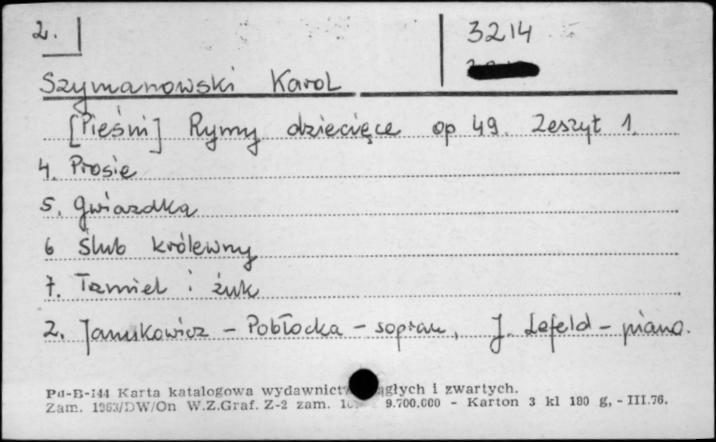 2.
3214
Szymanowski Karol
[Pieśni] Rymy dziecięce op 49. Zeszyt 1.
4. Prosię
5. Gwiazdka
6 Ślub królewny
7. Trzmiel i żuk
2. Janukowicz - Pobłocka - sopran, J. Lefeld - piano.
Pu-B-144 Karta katalogowa wydawnictw ciągłych i zwartych.
Zam. 1963/DW/On W.Z.Graf. Z-2 zam. 9.700.000 - Karton 3 kl 180 g, - III.76.